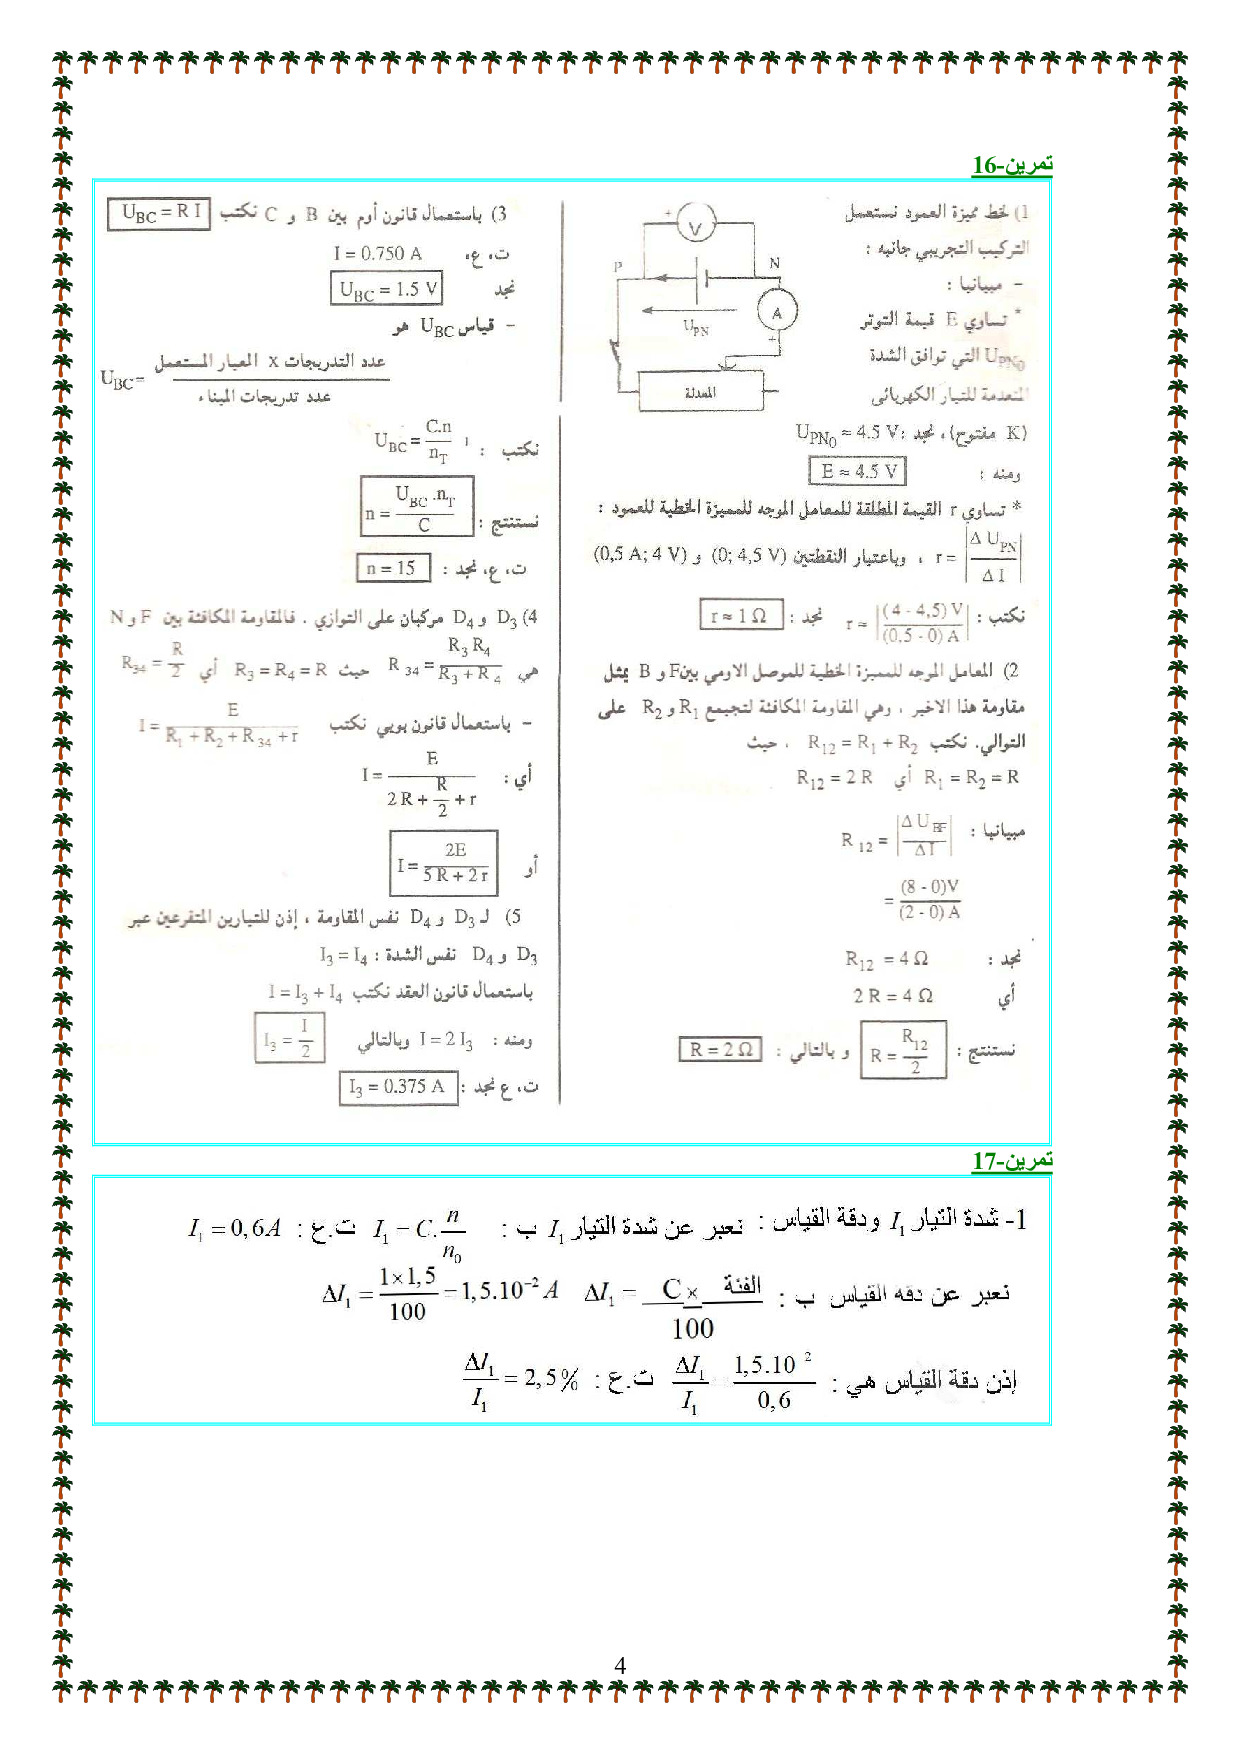 تمرين-16
1) لخط مميزة العمود نستعمل
التركيب التجريبي جانبه :
- مبيانيا :
* تساوي E قيمة التوتر
U_PN₀ التي توافق الشدة
المنعدمة للتيار الكهربائي
V
+
P
N
A
+
U_PN
المعدلة
(K مفتوح)، نجد : U_PN₀ ≈ 4.5 V
ومنه : E ≈ 4.5 V
* تساوي r القيمة المطلقة للمعامل الموجه للمميزة الخطية للعمود :
r = |Δ U_PN / Δ I| ، وباعتبار النقطتين (0; 4,5 V) و (0,5 A; 4 V)
نكتب : r ≈ |(4 - 4,5) V / (0.5 - 0) A| نجد : r ≈ 1 Ω
2) المعامل الموجه للمميزة الخطية للموصل الاومي بين F و B يمثل
مقاومة هذا الاخير ، وهي المقاومة المكافئة لتجميع R₁ و R₂ على
التوالي. نكتب R₁₂ = R₁ + R₂ ، حيث
R₁ = R₂ = R أي R₁₂ = 2 R
مبيانيا : R₁₂ = |Δ U_BF / Δ I|
= (8 - 0)V / (2 - 0) A
نجد : R₁₂ = 4 Ω
أي 2 R = 4 Ω
نستنتج : R = R₁₂ / 2 و بالتالي : R = 2 Ω
3) باستعمال قانون أوم بين B و C نكتب U_BC = R I
ت، ع، I = 0.750 A
نجد U_BC = 1.5 V
- قياس U_BC هو
U_BC = عدد التدريجات x العيار المستعمل / عدد تدريجات الميناء
نكتب : U_BC = C.n / n_T
نستنتج : n = U_BC .n_T / C
ت، ع، نجد : n = 15
4) D₃ و D₄ مركبان على التوازي . فالمقاومة المكافئة بين F و N
هي R₃₄ = R₃ R₄ / R₃ + R₄ حيث R₃ = R₄ = R أي R₃₄ = R / 2
- باستعمال قانون بويي نكتب I = E / R₁ + R₂ + R₃₄ + r
أي : I = E / 2 R + R/2 + r
أو I = 2E / 5 R + 2 r
5) لـ D₃ و D₄ نفس المقاومة ، إذن للتيارين المتفرعين عبر
D₃ و D₄ نفس الشدة : I₃ = I₄
باستعمال قانون العقد نكتب I = I₃ + I₄
ومنه : I = 2 I₃ وبالتالي I₃ = I / 2
ت، ع نجد : I₃ = 0.375 A
تمرين-17
1- شدة التيار I₁ ودقة القياس : نعبر عن شدة التيار I₁ ب : I₁ = C. n / n₀ ت.ع : I₁ = 0,6A
نعبر عن دقه القياس ب : ΔI₁ = C × الفئة / 100 ΔI₁ = 1×1,5 / 100 = 1,5.10⁻² A
إذن دقة القياس هي : ΔI₁ / I₁ 1,5.10 ² / 0,6 ت.ع : ΔI₁ / I₁ = 2,5%
4